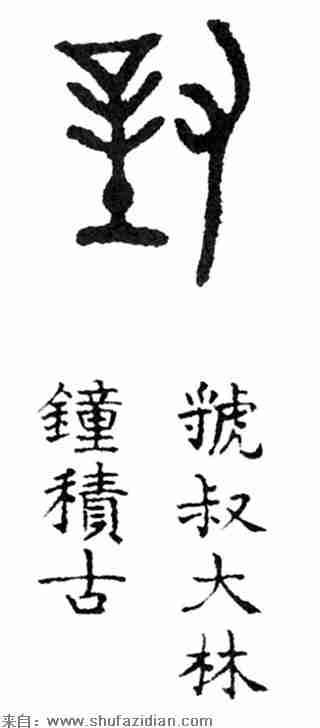 對
虢叔大林
鐘積古
来自：www.shufazidian.com